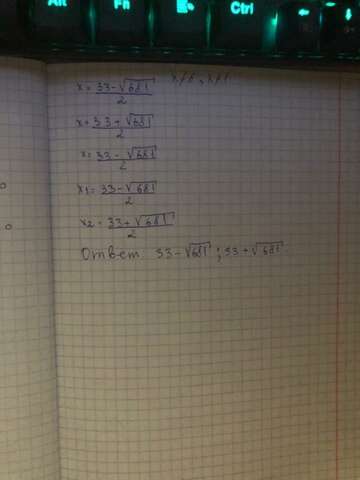 Alt Fn Ctrl
x = (33-√681)/2 x≠6, x≠1
x = (33+√681)/2
x = (33-√681)/2
x1 = (33-√681)/2
x2 = (33+√681)/2
Ответ 33-√681 ; 33+√681